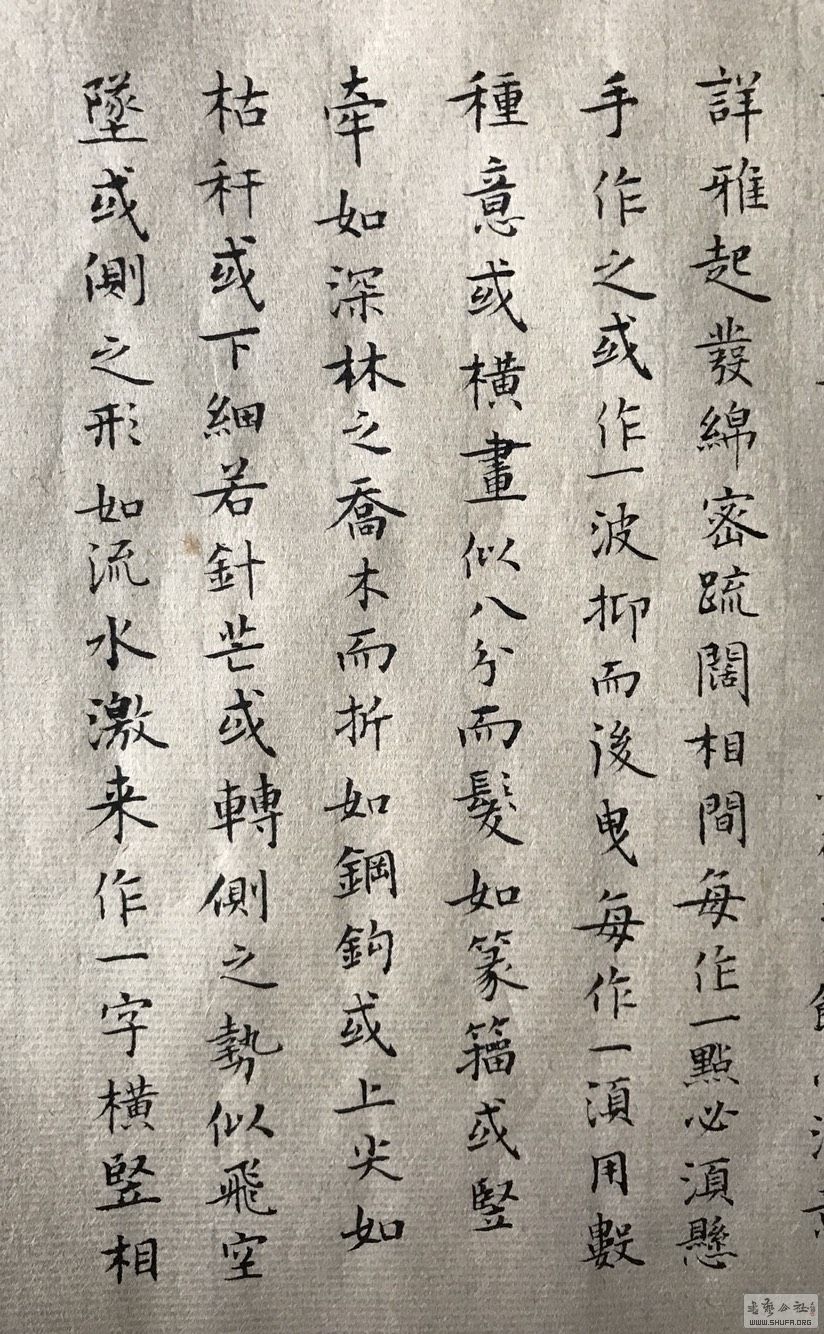 詳雅起發綿密疏闊相間每作一點必湏懸
手作之或作一波抑而後曳每作一湏用數
種意或橫畫似八分而髮如篆籀或豎
牽如深林之喬木而折如鋼鉤或上尖如
枯秆或下細若針芒或轉側之勢似飛空
墜或側之形如流水激来作一字橫豎相
WWW.SHUFA.ORG